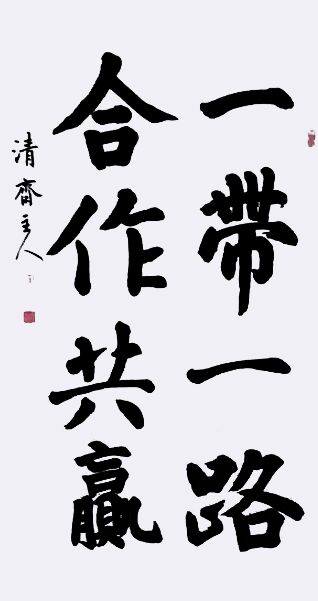 一帶一路
合作共贏
清齋主人